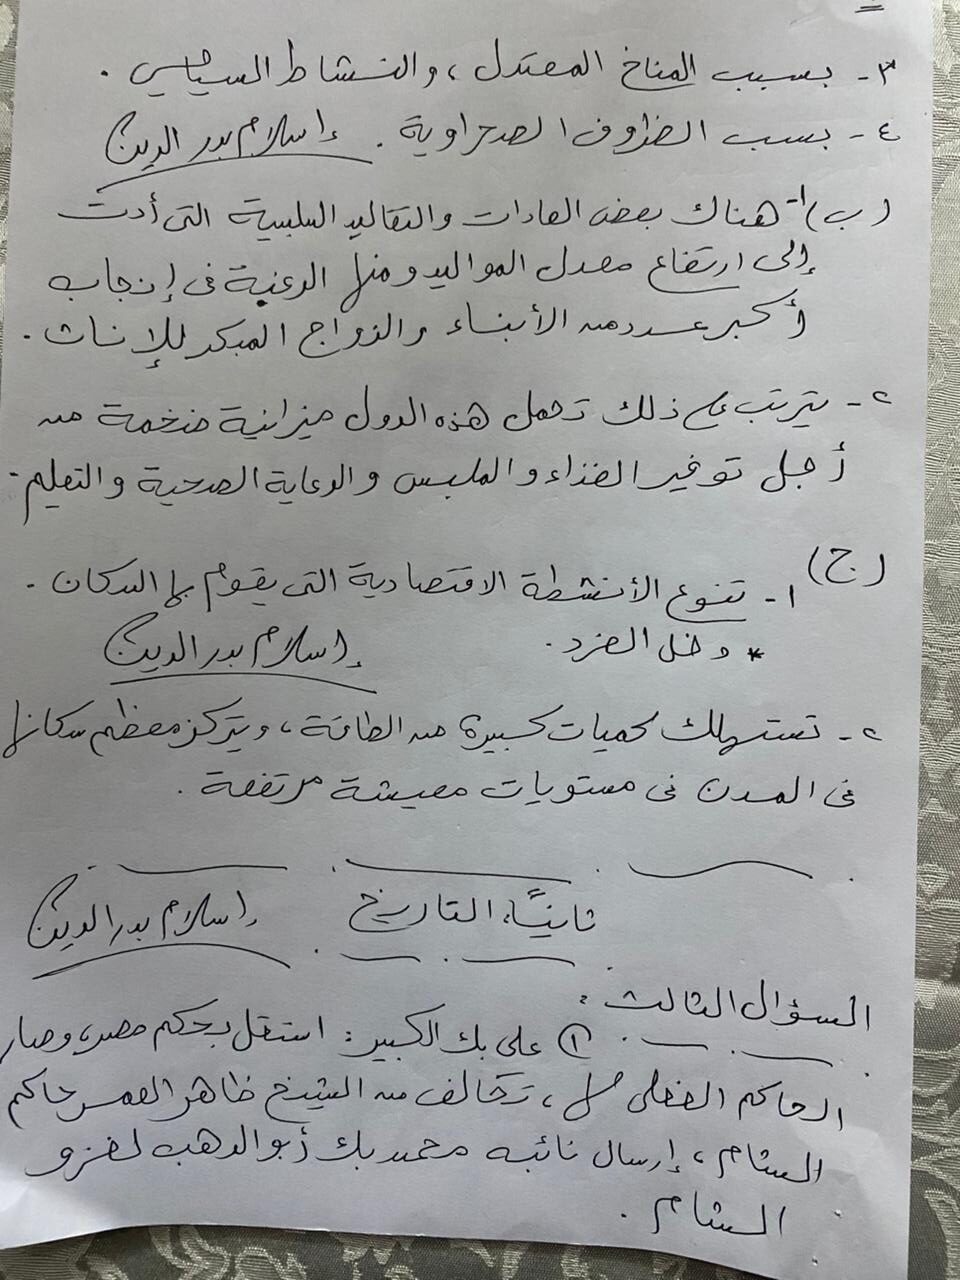 ٣- بسبب المناخ المعتدل، والنشاط السياسي.
٤- بسبب الظروف الصحراوية. إسلام بدر الدين
(ب) ١- هناك بعض العادات والتقاليد السلبية التى أدت
إلى ارتفاع معدل المواليد ومنها الرغبة فى إنجاب
أكبر عدد من الأبناء والزواج المبكر للإناث.
٢- يترتب على ذلك تحمل هذه الدول ميزانية ضخمة من
أجل توفير الغذاء والملبس والرعاية الصحية والتعليم.
(ج) ١- تنوع الأنشطة الاقتصادية التى يقوم بها السكان.
* دخل الفرد. إسلام بدر الدين
٢- تستهلك كميات كبيرة من الطاقة، ويتركز معظم سكانها
فى المدن فى مستويات معيشة مرتفعة.
ثانيًا: التاريخ إسلام بدر الدين
السؤال الثالث:
١ على بك الكبير: استقل بحكم مصر، وصار
الحاكم الفعلى لها، تحالف مع الشيخ ظاهر العمر حاكم
الشام، إرسال نائبه محمد بك أبو الدهب لغزو
الشام.